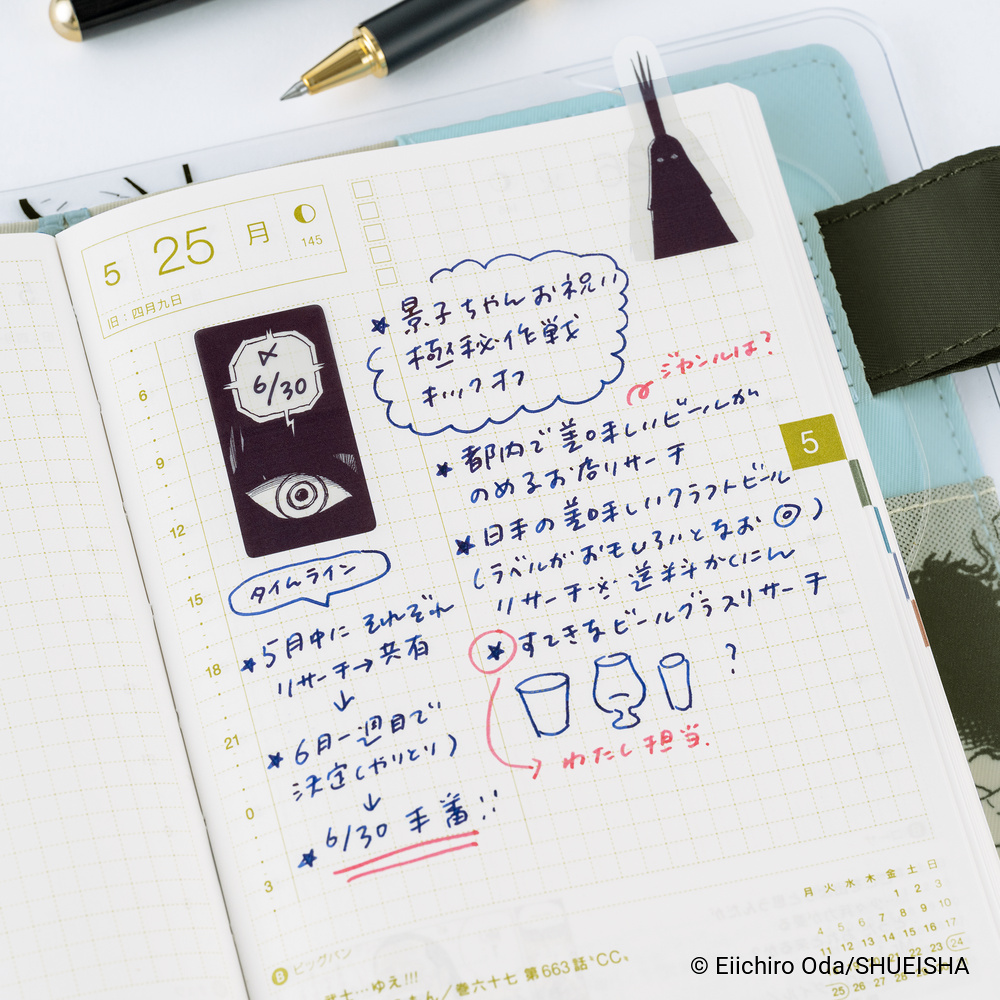 5 25 月
145
旧：四月九日
6
9
12
15
18
21
0
3
〆
6/30
タイムライン
★5月中に それぞれ
リサーチ→共有
↓
★6月一週目で
決定（やりとり）
↓
★6/30 手着!!
★景子ちゃんお祝い
極秘作戦
キックオフ
ジャンルは?
★都内で美味しいビールが
のめるお店リサーチ
★日本の美味しいクラフトビール
（ラベルがおもしろいとなお◎）
リサーチ※送料かくにん
★すてきなビールグラスリサーチ
?
わたし担当.
5
月 火 水 木 金 土 日
1 2 3
4 5 6 7 8 9 10
11 12 13 14 15 16 17
22 23 24
25 26 27 28 29 30 31
B ビッグパン
武士…ゆえ!!!
／巻六十七 第663話“CC”
© Eiichiro Oda/SHUEISHA